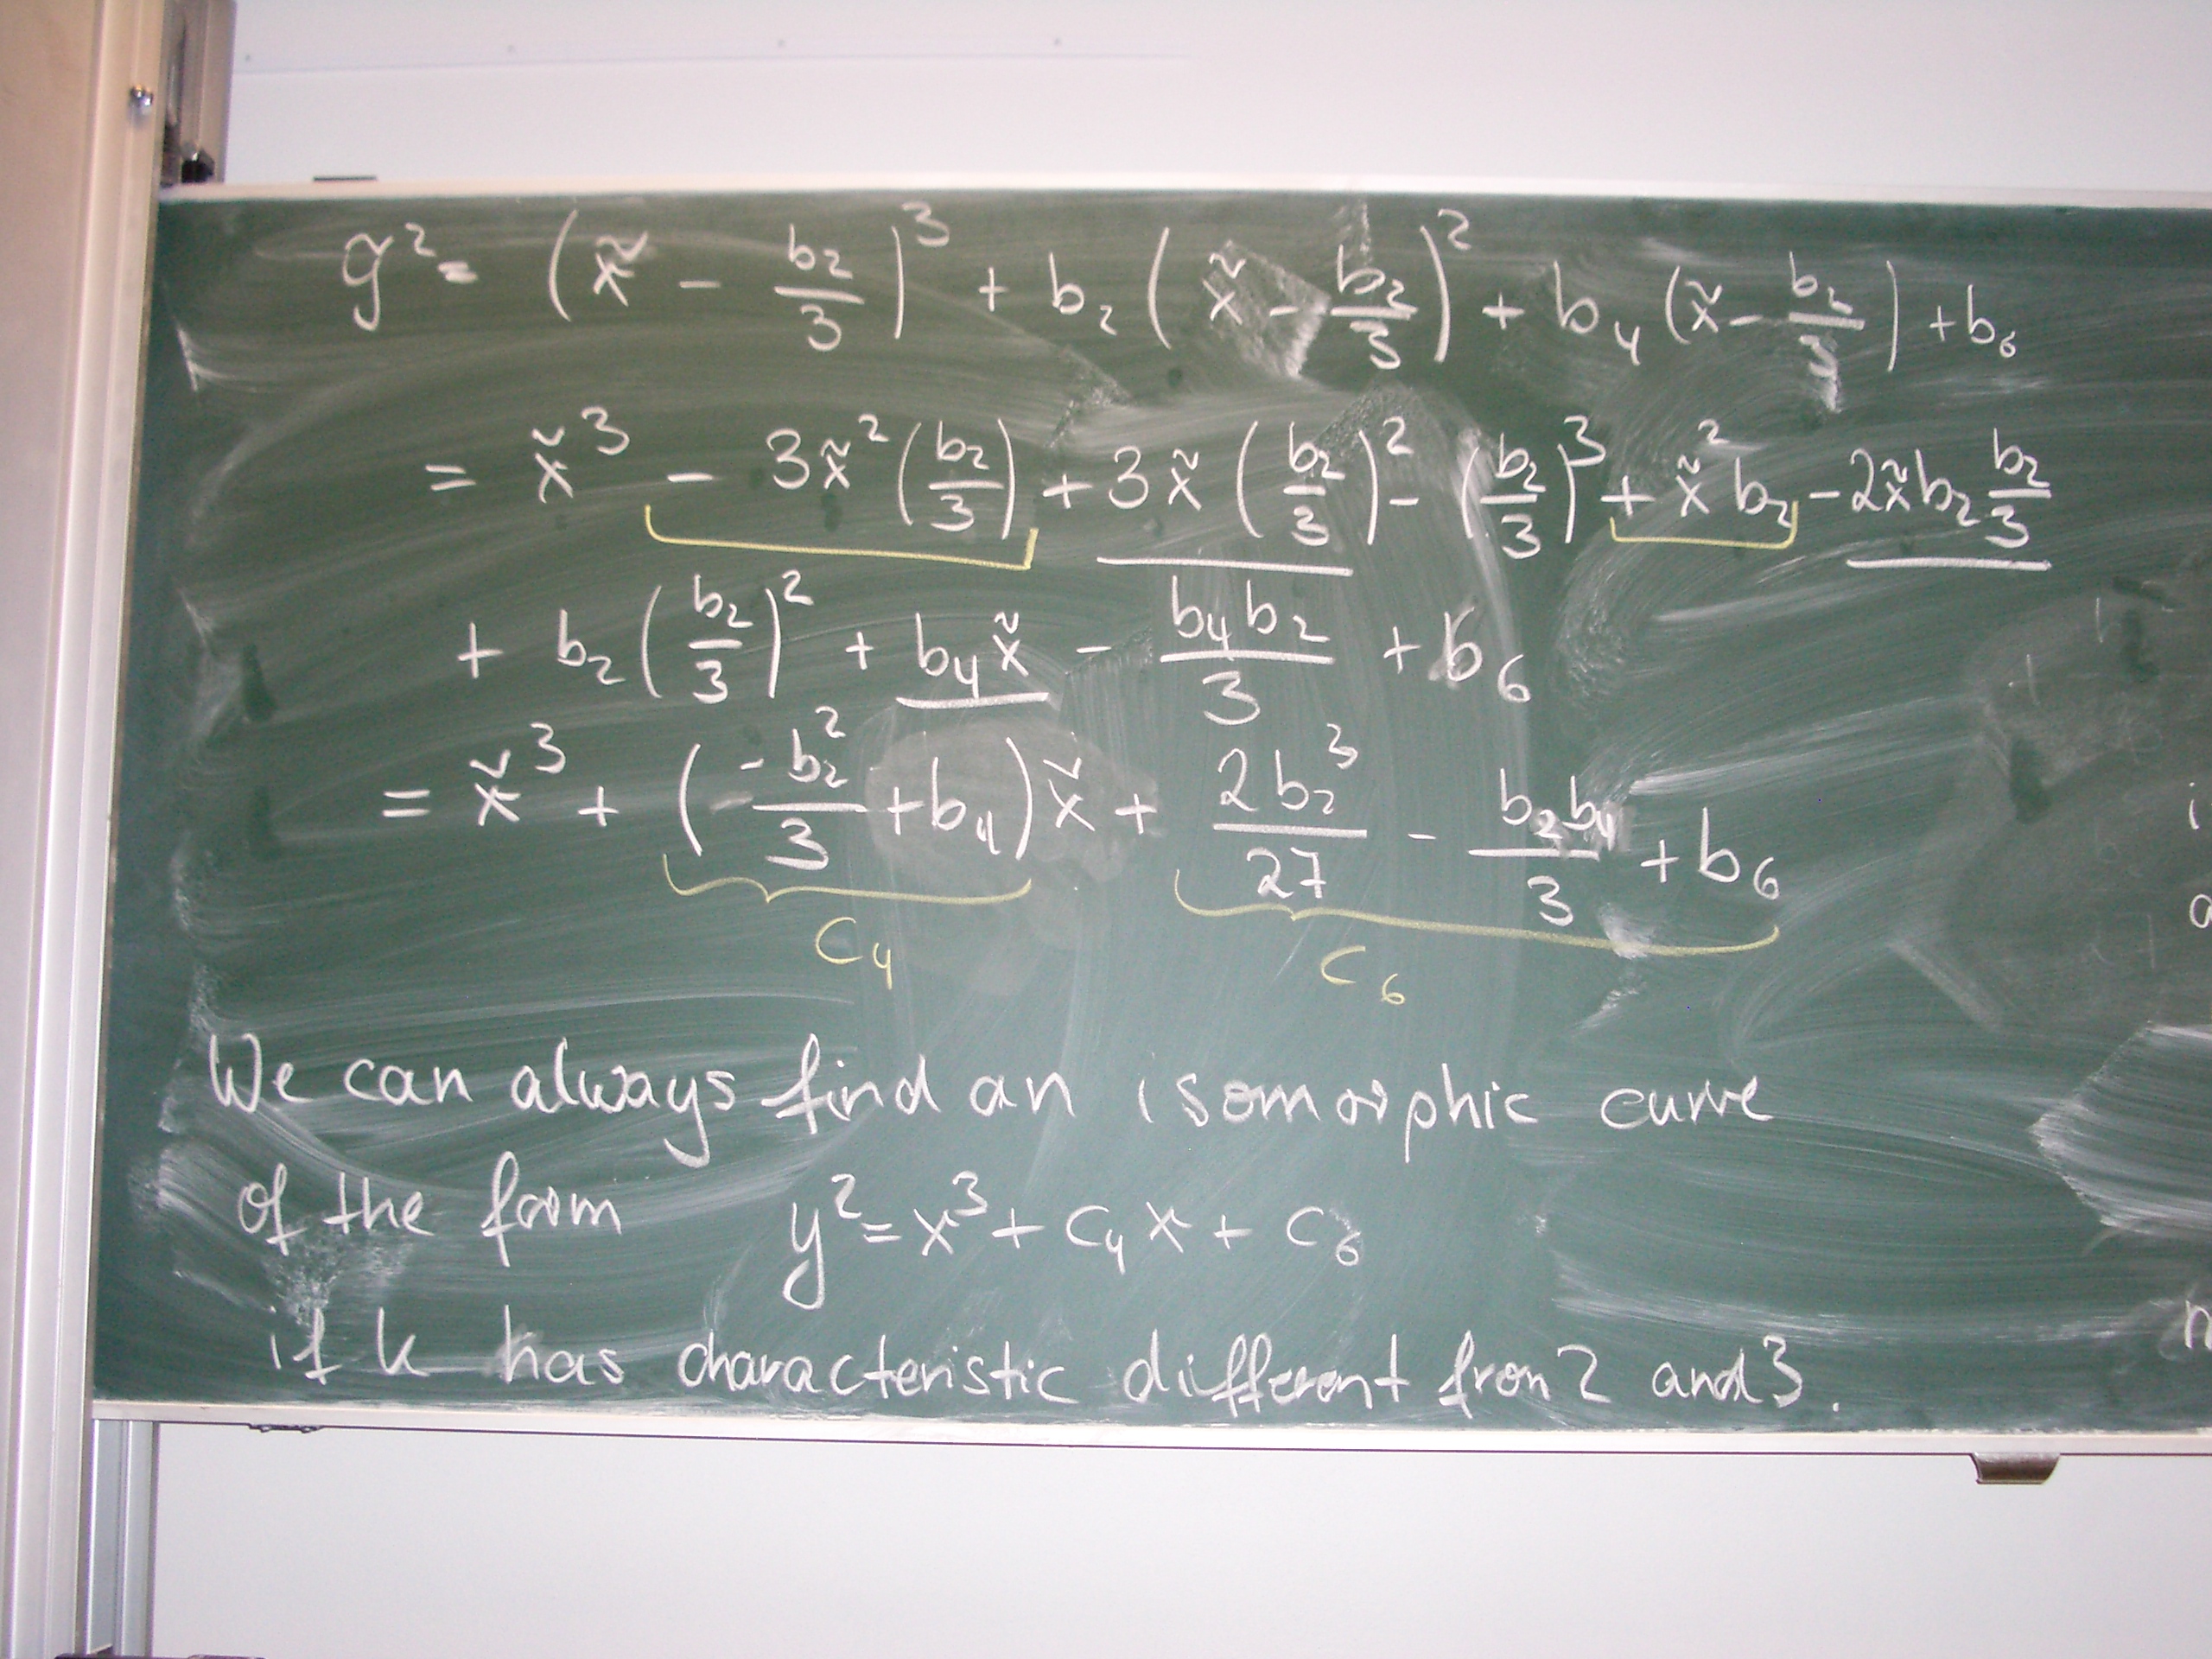 ỹ² = (x̃ - b₂/3)³ + b₂(x̃ - b₂/3)² + b₄(x̃ - b₂/3) + b₆
= x̃³ - 3x̃²(b₂/3) + 3x̃(b₂/3)² - (b₂/3)³ + x̃²b₂ - 2x̃b₂ b₂/3
+ b₂(b₂/3)² + b₄x̃ - b₄b₂/3 + b₆
= x̃³ + (-b₂²/3 + b₄)x̃ + 2b₂³/27 - b₂b₄/3 + b₆
c₄ c₆
We can always find an isomorphic curve
of the form y² = x³ + c₄x + c₆
if k has characteristic different from 2 and 3.